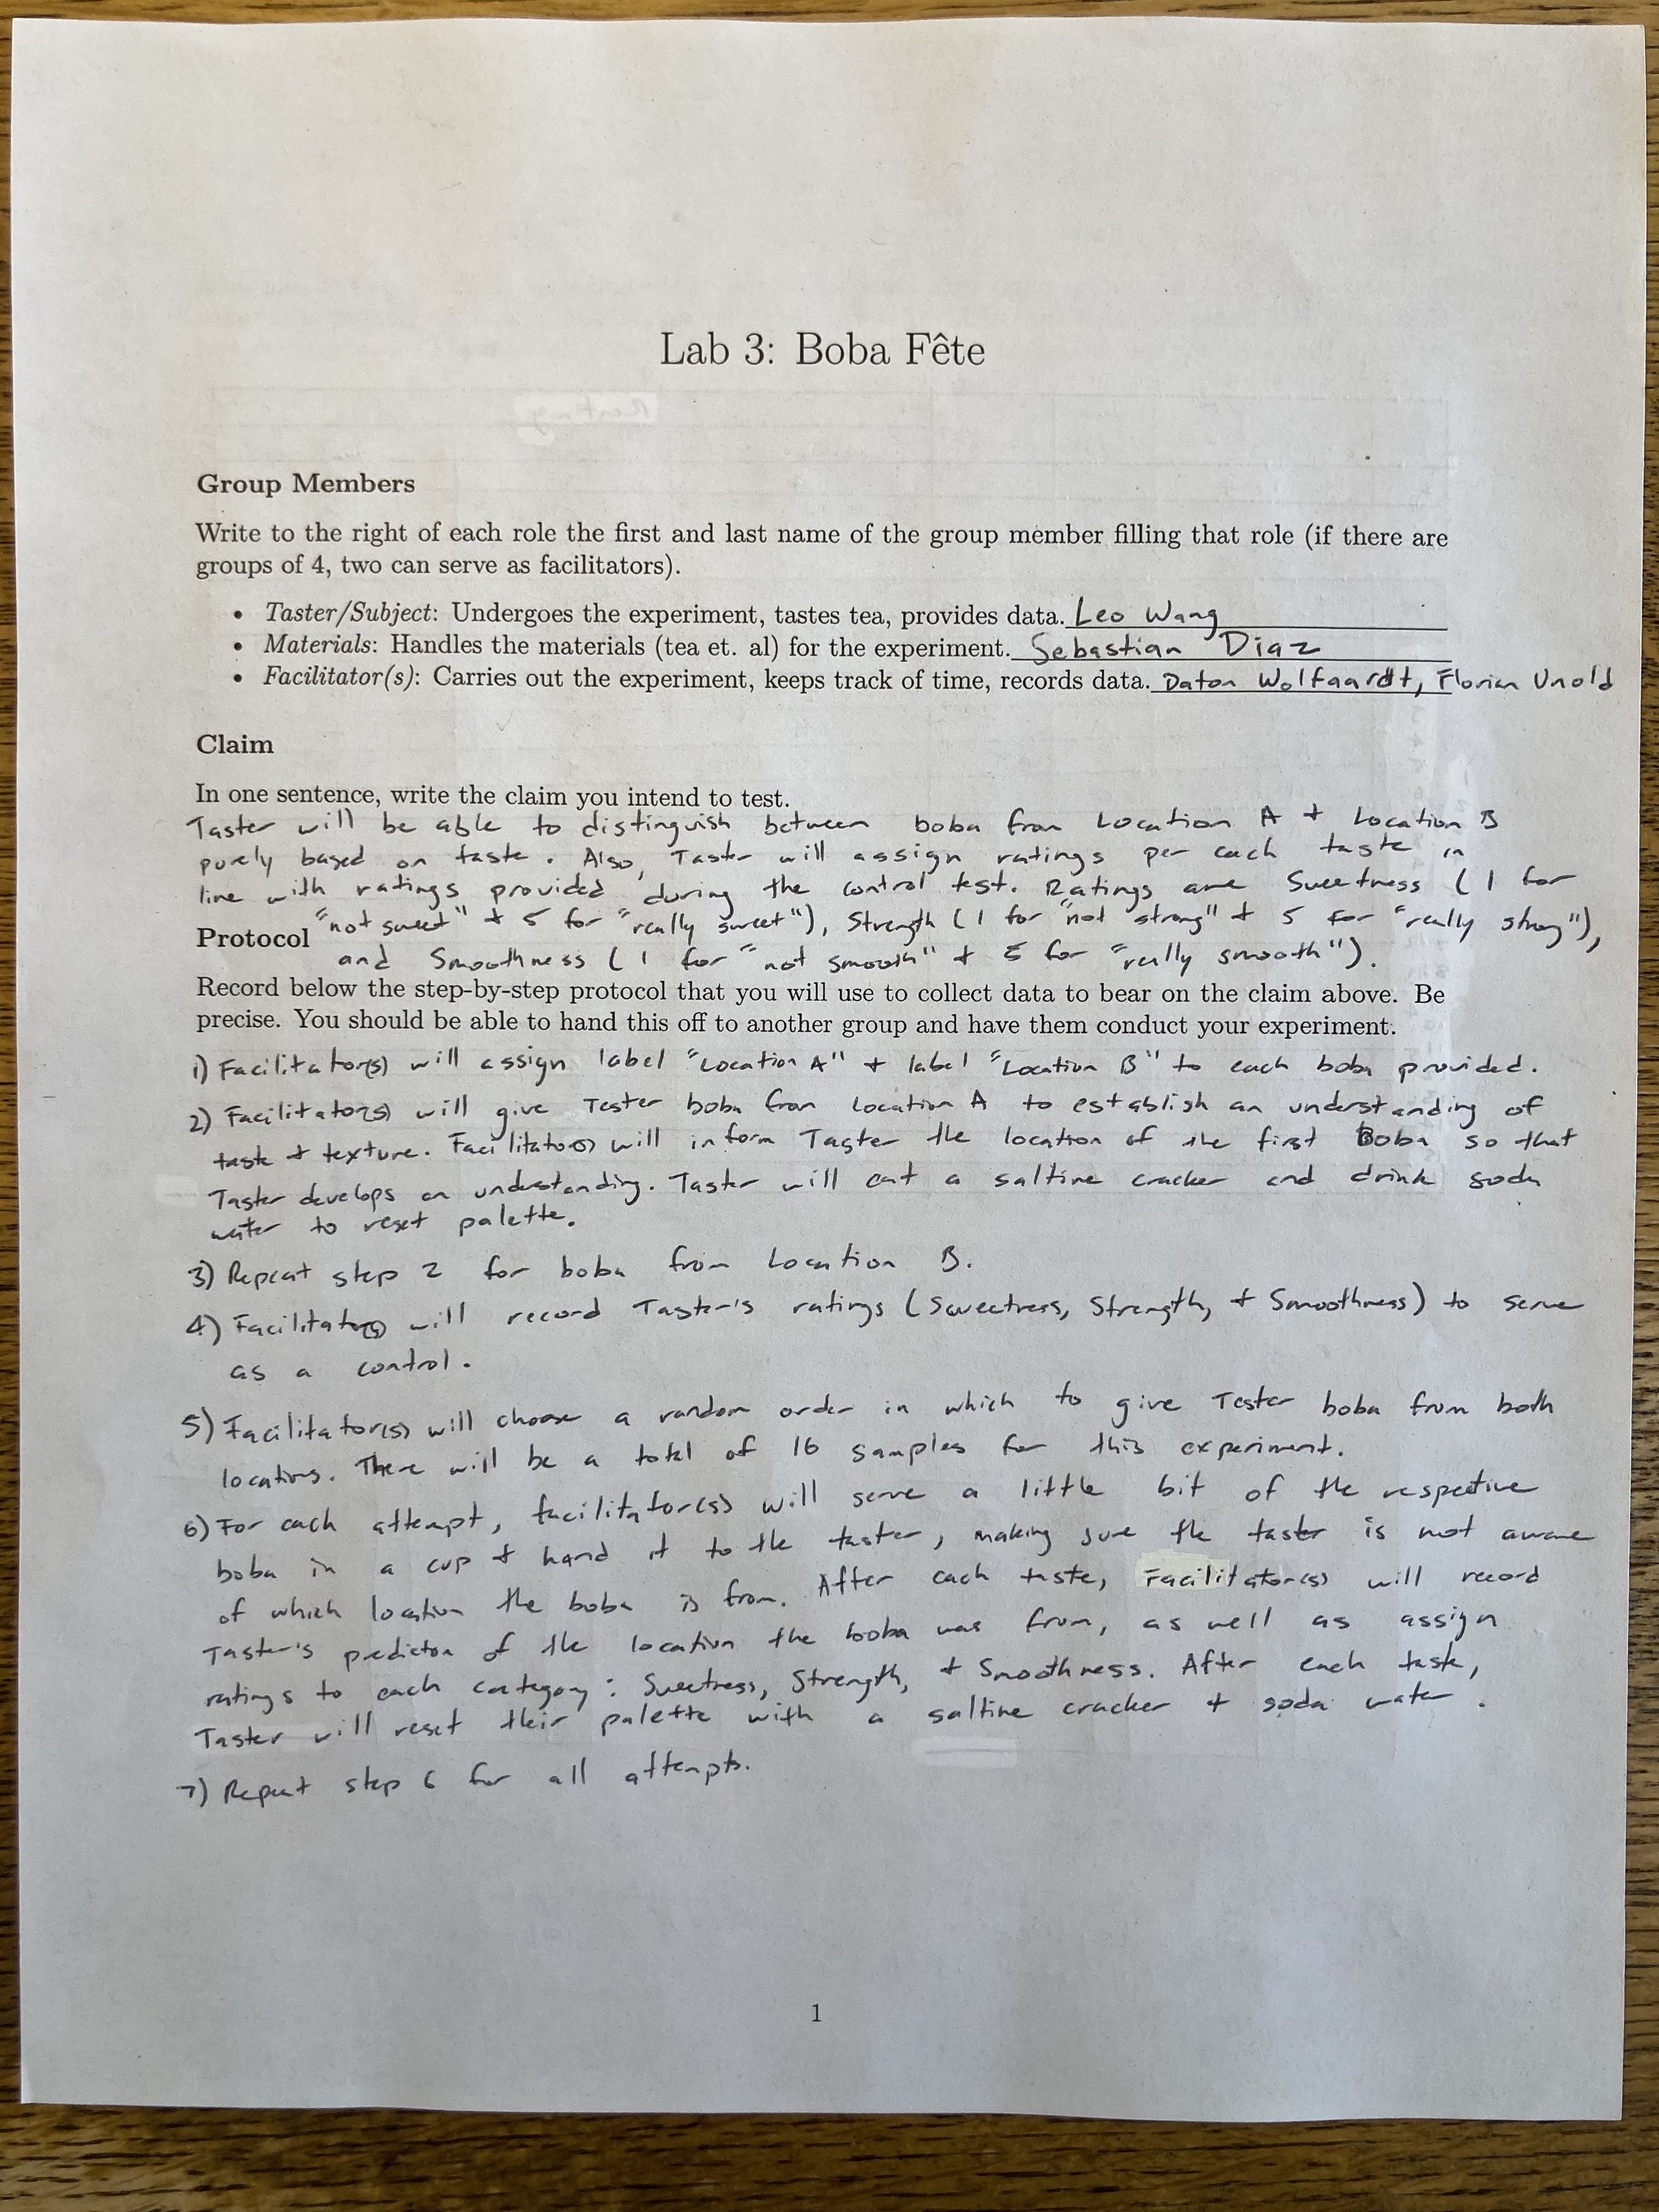 Lab 3: Boba Fête
Group Members
Write to the right of each role the first and last name of the group member filling that role (if there are
groups of 4, two can serve as facilitators).
• Taster/Subject: Undergoes the experiment, tastes tea, provides data. Leo Wang
• Materials: Handles the materials (tea et. al) for the experiment. Sebastian Diaz
• Facilitator(s): Carries out the experiment, keeps track of time, records data. Daton Wolfaardt, Florian Unold
Claim
In one sentence, write the claim you intend to test.
Taster will be able to distinguish between boba from Location A + Location B
purely based on taste. Also, Taster will assign ratings per each taste in
line with ratings provided during the control test. Ratings are Sweetness (1 for
"not sweet" + 5 for "really sweet"), Strength (1 for "not strong" + 5 for "really strong"),
Protocol
and Smoothness (1 for "not smooth" + 5 for "really smooth").
Record below the step-by-step protocol that you will use to collect data to bear on the claim above. Be
precise. You should be able to hand this off to another group and have them conduct your experiment.
1) Facilitator(s) will assign label "Location A" + label "Location B" to each boba provided.
2) Facilitator(s) will give Tester boba from location A to establish an understanding of
taste + texture. Facilitator(s) will inform Taster the location of the first Boba so that
Taster develops an understanding. Taster will eat a saltine cracker and drink soda
water to reset palette.
3) Repeat step 2 for boba from Location B.
4) Facilitator(s) will record Taster's ratings (Sweetness, Strength, + Smoothness) to serve
as a control.
5) Facilitator(s) will choose a random order in which to give Tester boba from both
locations. There will be a total of 16 samples for this experiment.
6) For each attempt, facilitator(s) will serve a little bit of the respective
boba in a cup + hand it to the taster, making sure the taster is not aware
of which location the boba is from. After each taste, Facilitator(s) will record
Taster's prediction of the location the boba was from, as well as assign
ratings to each category: Sweetness, Strength, + Smoothness. After each taste,
Taster will reset their palette with a saltine cracker + soda water.
7) Repeat step 6 for all attempts.
1